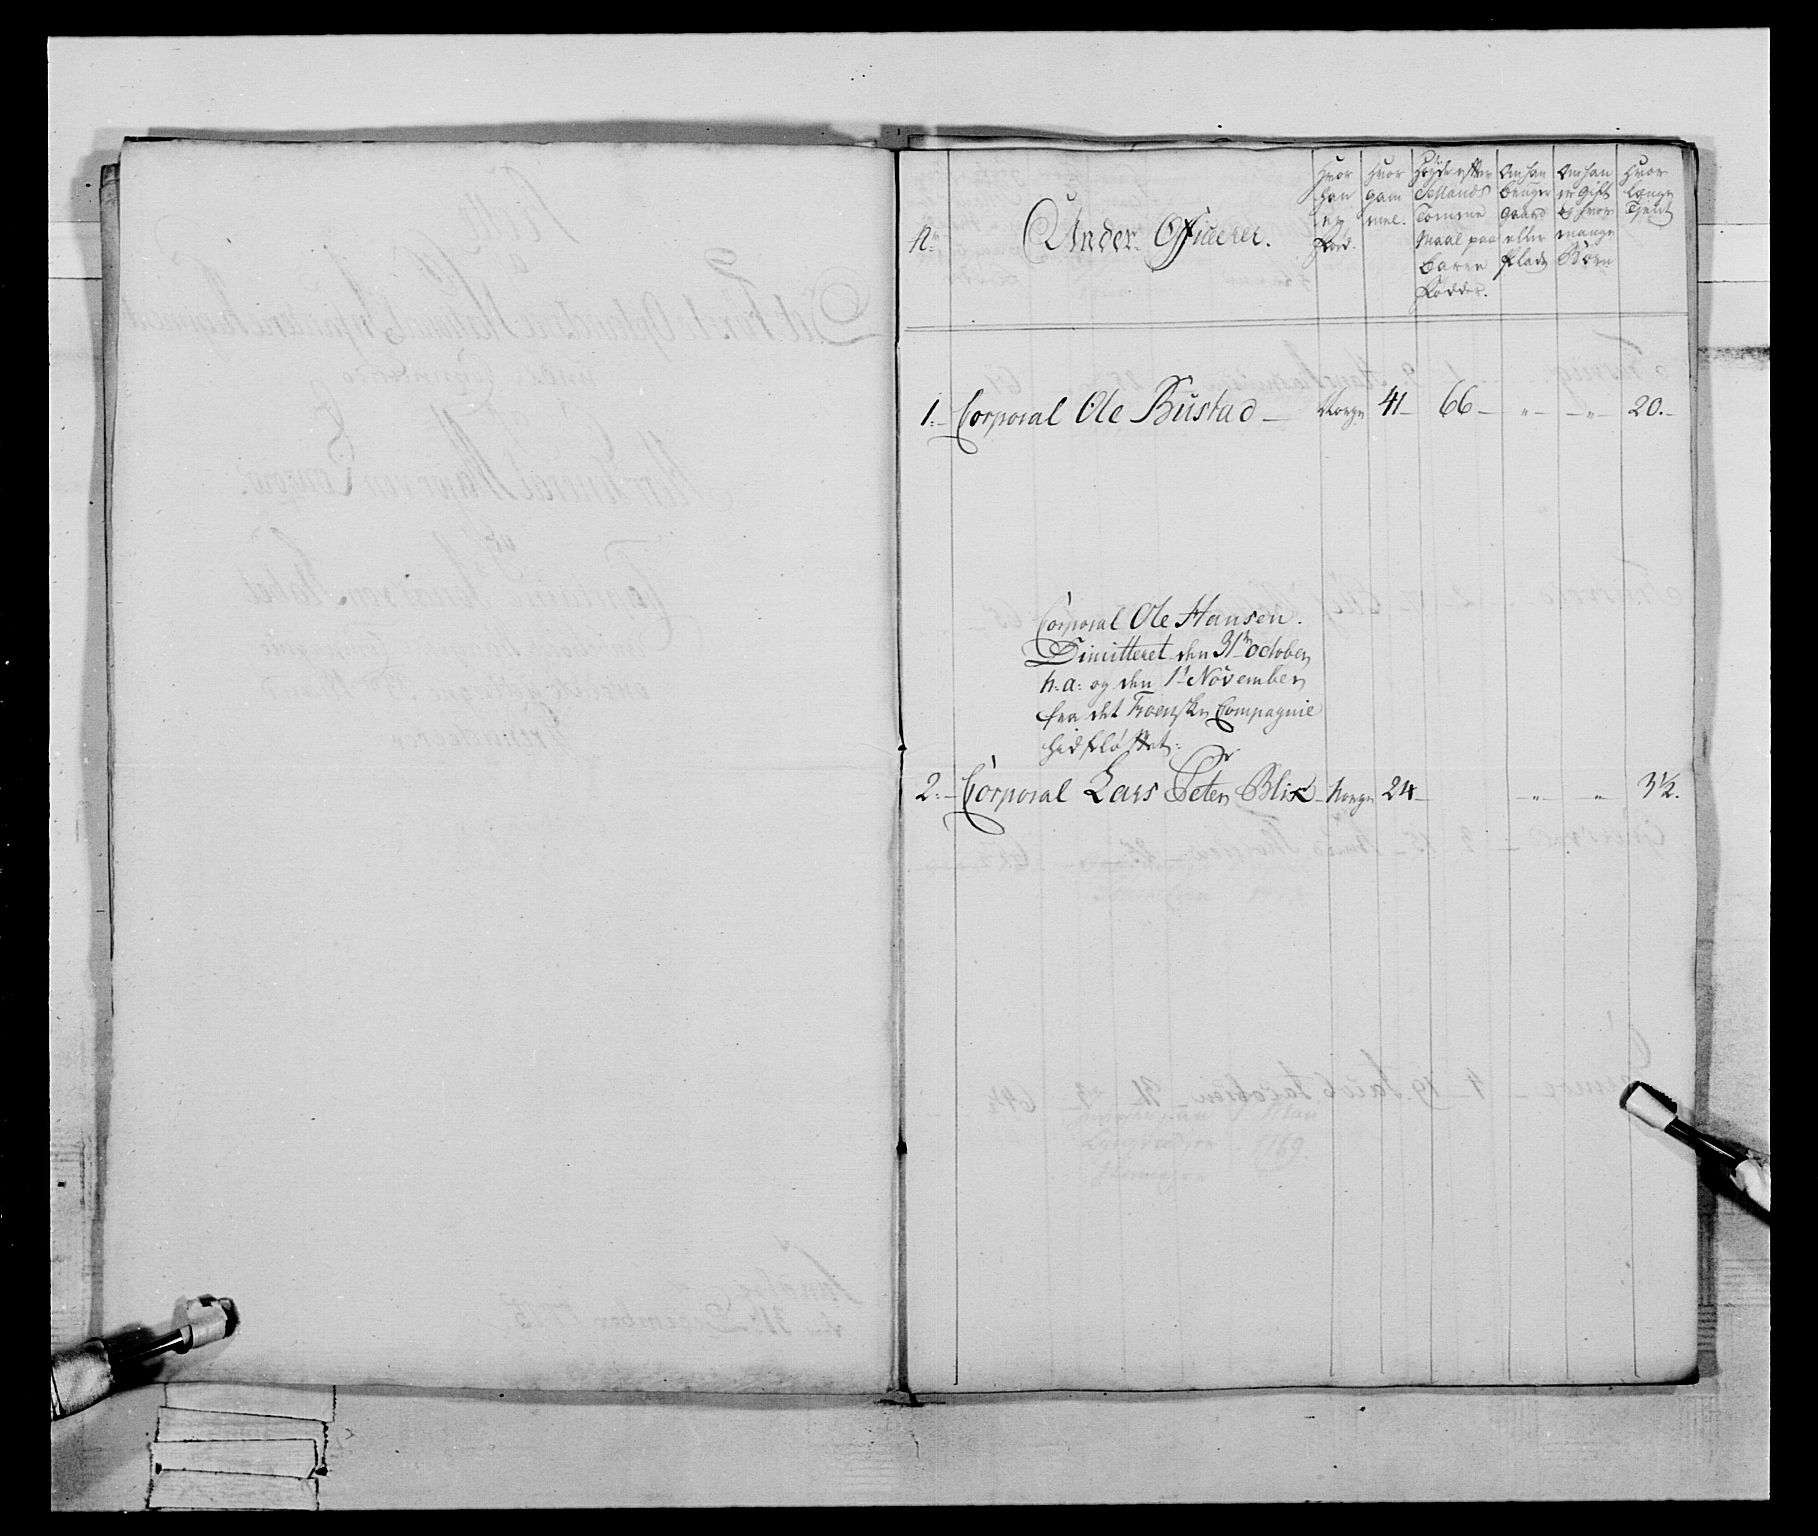 No
Under Officerer.
Hvor
han
er
Fød.
Hvor
gam
mel.
Høyde efter
Sællands
Tomme
Maal paa
bare
Fødder.
Om han
bruger
gaard
eller
Plads
Om han
er gift
og hvor
mange
Børn
Hvor
længe
Tient
1. Corporal Ole Bustad - Norge 41 - 66 - " - " - 20. -
Corporal Ole Hansen.
Dimitteret den 31te october
h: a: og den 1te November
fra det Compagnie
hidfløttet:
2. Corporal Lars Peter Blix - Norge 24 - " - " 3½.